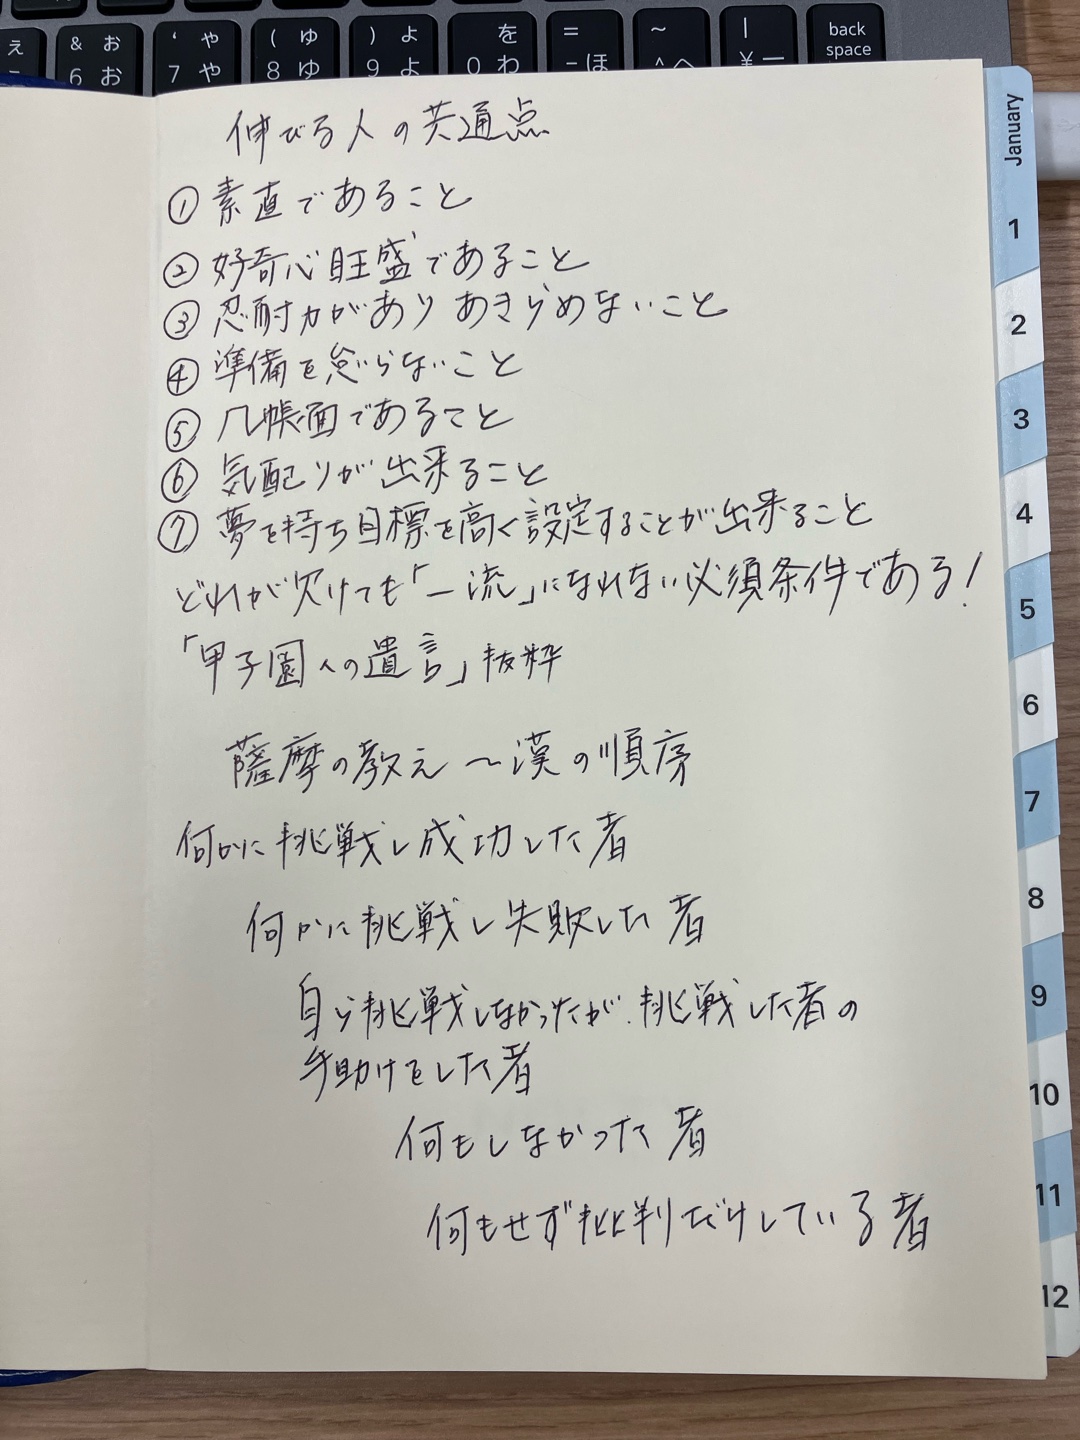 え
& お
6 お
' や
7 や
( ゆ
8 ゆ
) よ
9 よ
を
0 わ
=
- ほ
~
^ へ
|
¥ ー
back
space
伸びる人の共通点
① 素直であること
② 好奇心旺盛であること
③ 忍耐力があり あきらめないこと
④ 準備を怠らないこと
⑤ 几帳面であること
⑥ 気配りが出来ること
⑦ 夢を持ち目標を高く設定することが出来ること
どれが欠けても「一流」になれない必須条件である!
「甲子園への遺言」抜粋
薩摩の教え ～漢の順序
何かに挑戦し成功した者
何かに挑戦し失敗した者
自ら挑戦しなかったが、挑戦した者の
手助けをした者
何もしなかった者
何もせず批判だけしている者
January
1
2
3
4
5
6
7
8
9
10
11
12